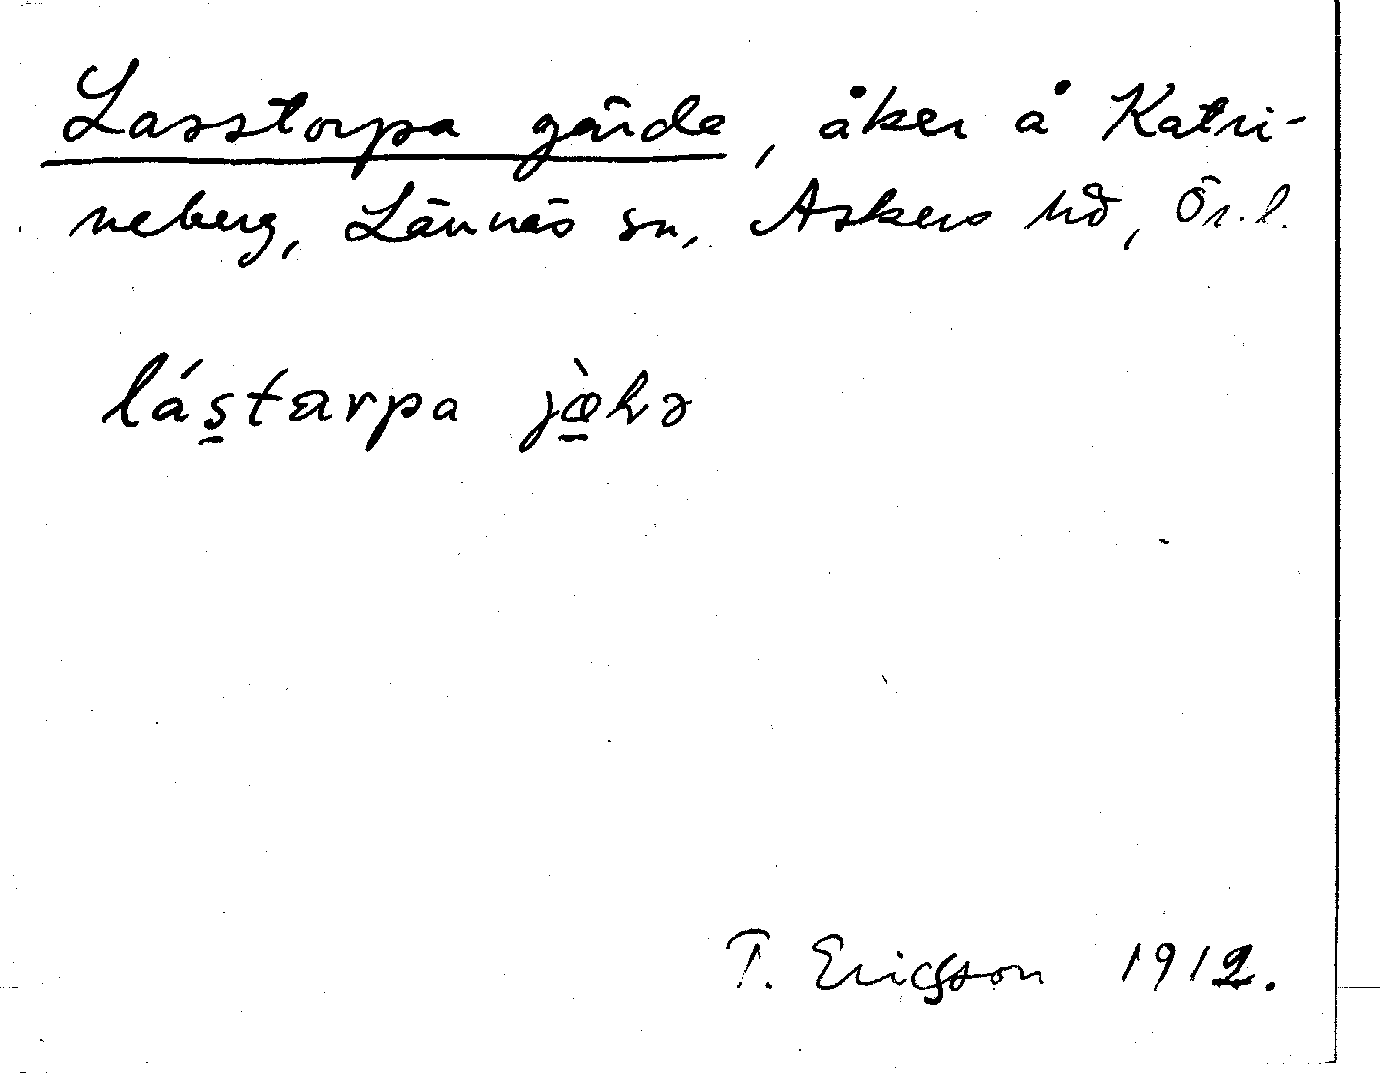 Lasstorpa gärde, åker å Katri-
neberg, Lännäs sn, Askers hd, Ör. l.
lás̱tarpa jæ̱̀hə
T. Ericsson 1912.